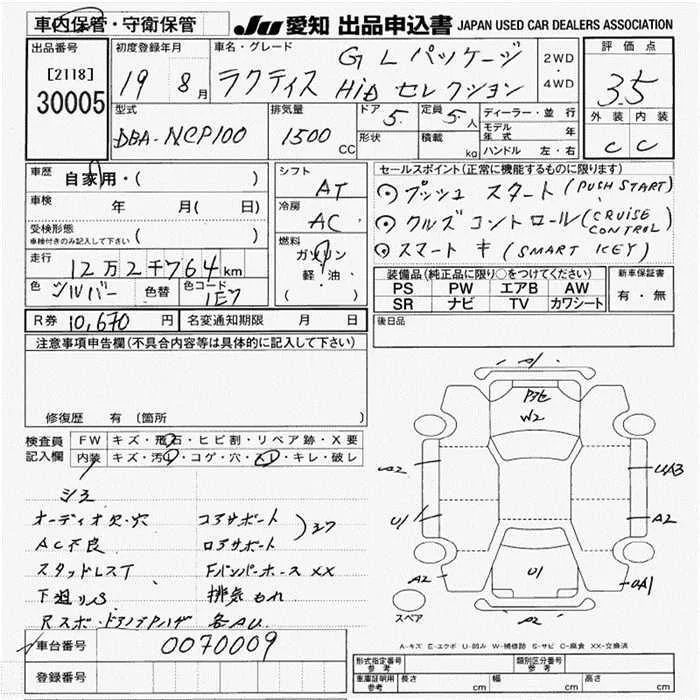 車内保管・守衛保管
JU 愛知 出品申込書 JAPAN USED CAR DEALERS ASSOCIATION
出品番号
[2118]
30005
初度登録年月
19 8月
車名・グレード
GLパッケージ
ラクティス HID セレクション
2WD
・
4WD
評価点
3.5
外装 内装
C C
型式
DBA-NCP100
排気量
1500 CC
ドア 5
形状
定員 5人
積載 kg
ディーラー・並行
モデル年式 年
ハンドル 左・右
車歴
自家用・( )
車検 年 月( 日)
受検形態
車検付きのみ記入して下さい ( )
走行
12万2千764km
色 シルバー 色替 色コード 1E7
シフト
AT
冷房
AC
燃料
ガソリン
軽・油
( )
セールスポイント(正常に機能するものに限ります)
プッシュ スタート (PUSH START)
クルズコントロール (CRUISE CONTROL)
スマート キ (SMART KEY)
装備品(純正品に限り○をつけてください)
PS PW エアB AW
SR ナビ TV カワシート
新車保証書
有・無
R券 10,670 円 名変通知期限 月 日
後日品
注意事項申告欄(不具合内容等は具体的に記入して下さい)
修復歴 有 〔箇所 〕
検査員記入欄
FW キズ・飛石・ヒビ割・リペア跡・X要
内装 キズ・汚レ・コゲ・穴・スレ・キレ・破レ
シミ
オーディオ欠・穴 コアサポート
AC不良 ロアサポート
スタッドレスT Fバンパーホース XX
下廻りサビ 排気もれ
各AU
車台番号 0070009
登録番号
A1
W2
A2
U1
A2
UA3
A2
UA1
U1
A2
スペア
A-キズ E-エクボ U-凹み W-補修跡 S-サビ C-腐食 XX-交換済
形式指定番号 参考
類別区分番号 参考
車庫証明用 参考 長さ cm 幅 cm 高さ cm